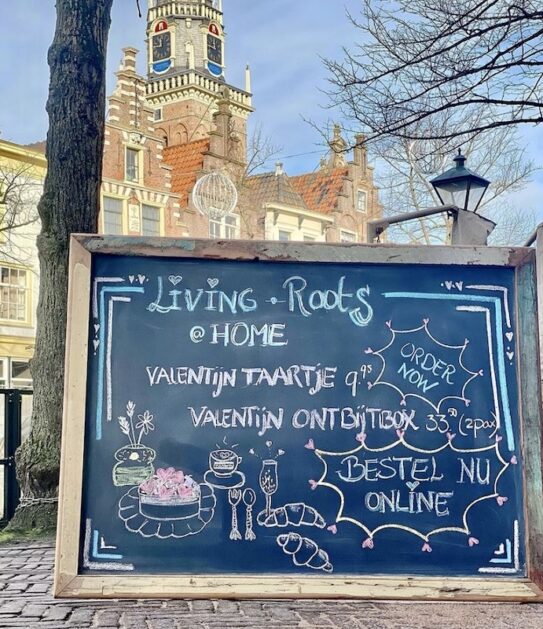 Living Roots
@ HOME
VALENTIJN TAARTJE 9.95
ORDER NOW
VALENTIJN ONTBIJTBOX 33.50 (2pax)
BESTEL NU
ONLINE